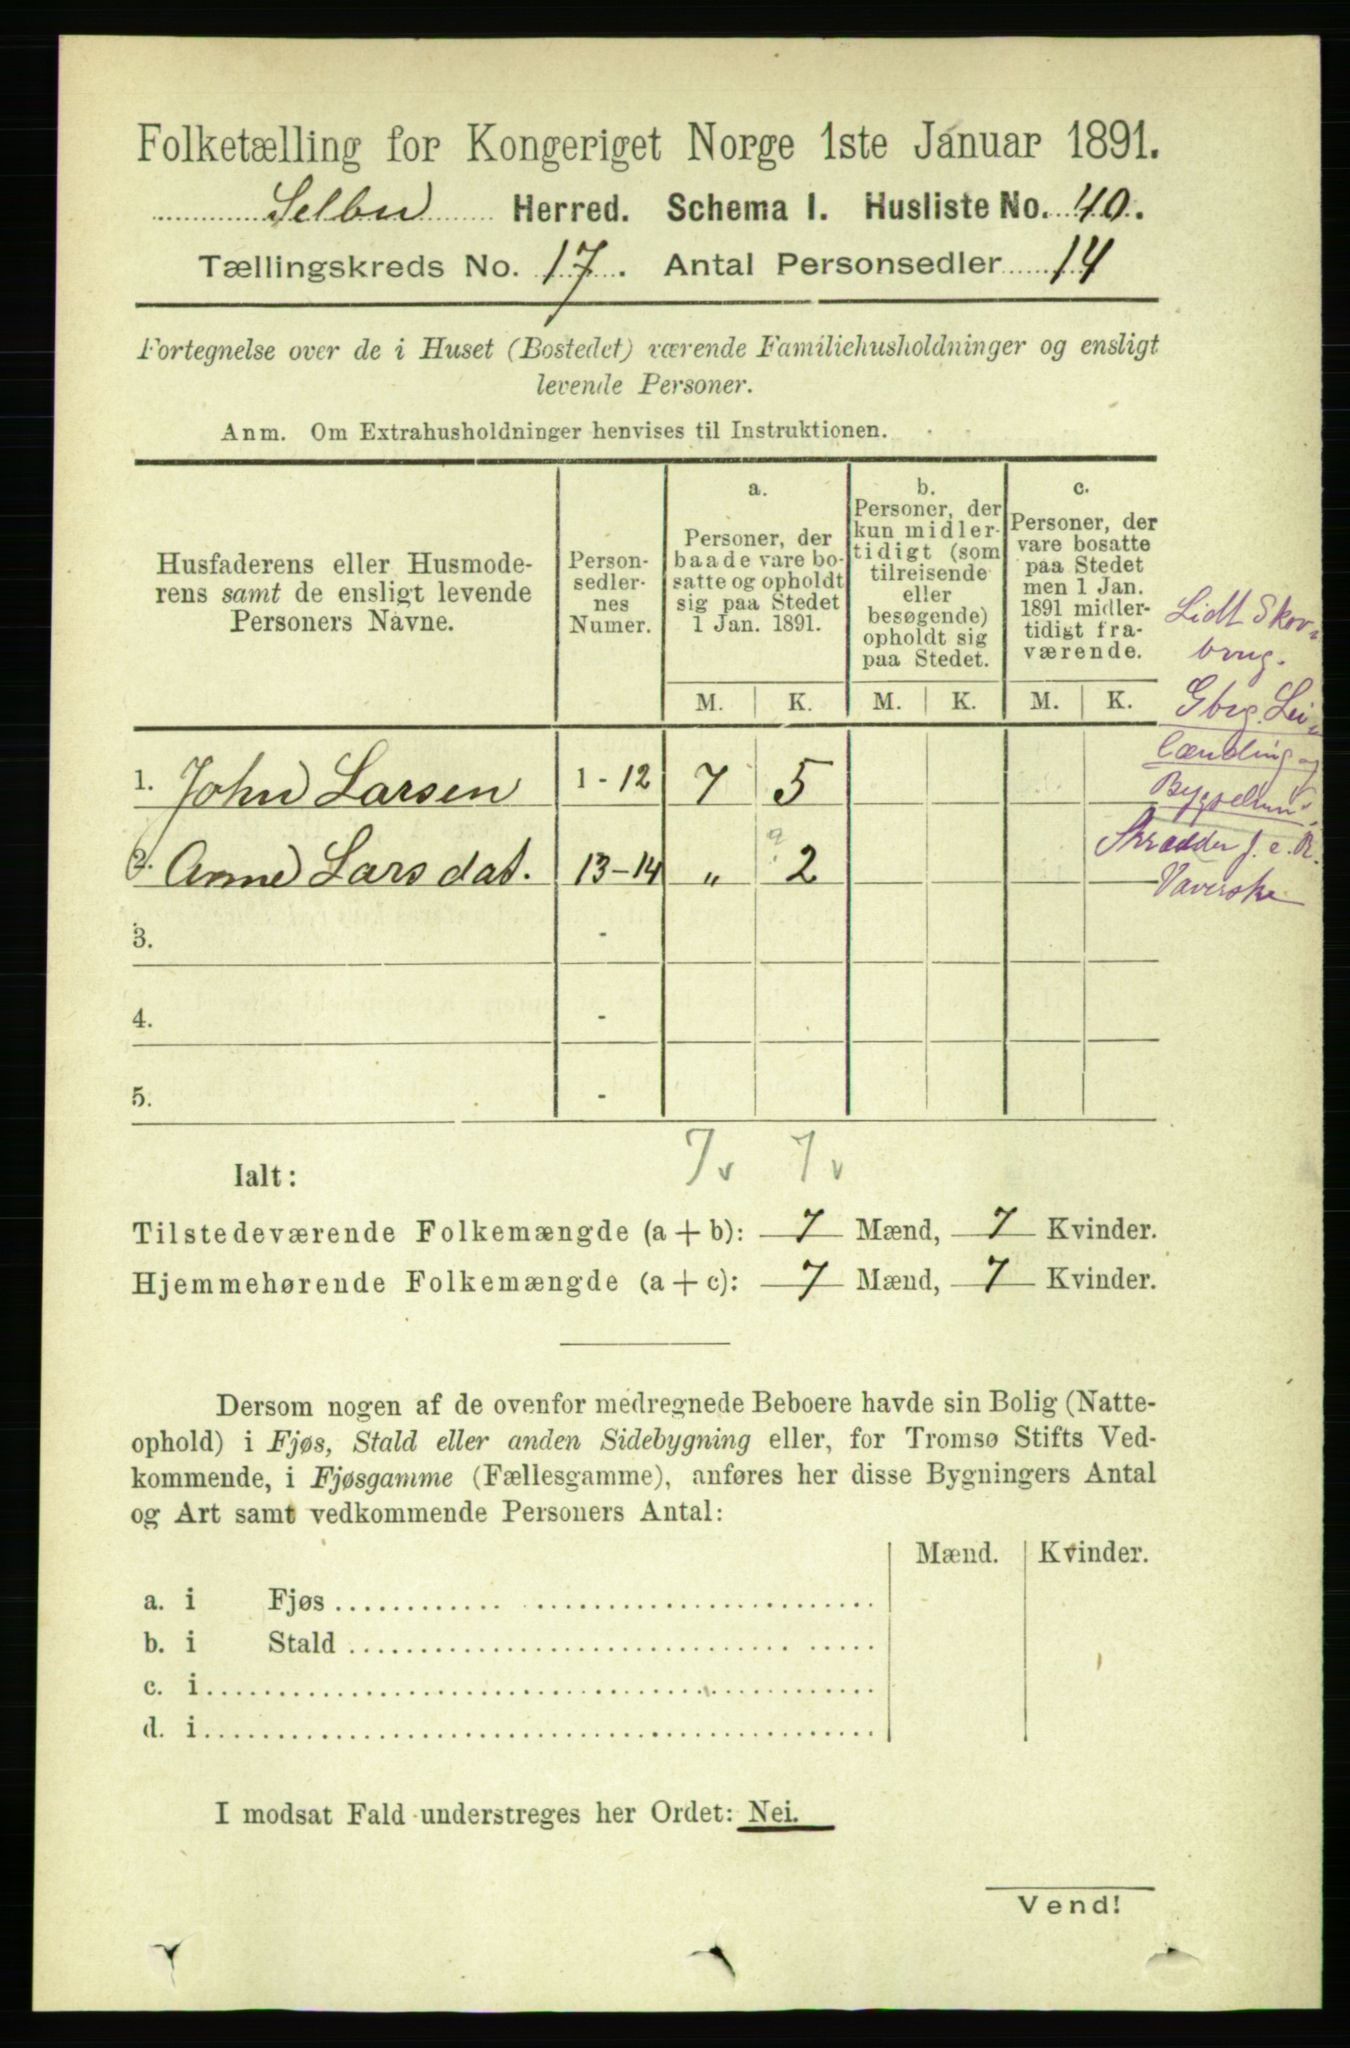 Folketælling for Kongeriget Norge 1ste Januar 1891.
Selbu Herred. Schema I. Husliste No. 40.
Tællingskreds No. 17. Antal Personsedler 14
Fortegnelse over de i Huset (Bostedet) værende Familiehusholdninger og ensligt
levende Personer.
Anm. Om Extrahusholdninger henvises til Instruktionen.
Husfaderens eller Husmode-
rens samt de ensligt levende
Personers Navne.
Person-
sedler-
nes
Numer.
a.
Personer, der
baade vare bo-
satte og opholdt
sig paa Stedet
1 Jan. 1891.
b.
Personer, der
kun midler-
tidigt (som
tilreisende
eller
besøgende)
opholdt sig
paa Stedet.
c.
Personer, der
vare bosatte
paa Stedet
men 1 Jan.
1891 midler-
tidigt fra-
værende.
M. K. M. K. M. K.
Lidt Skov-
brug.
Gbrg. Lei-
lænding og
1. John Larsen 1 - 12 7 5
2. Anne Larsdat. 13 - 14 " 2
Skrædder f. e. R.
Væverske
3. -
4. -
5. -
7v 7v
Ialt:
Tilstedeværende Folkemængde (a + b): 7 Mænd, 7 Kvinder.
Hjemmehørende Folkemængde (a + c): 7 Mænd, 7 Kvinder.
Dersom nogen af de ovenfor medregnede Beboere havde sin Bolig (Natte-
ophold) i Fjøs, Stald eller anden Sidebygning eller, for Tromsø Stifts Ved-
kommende, i Fjøsgamme (Fællesgamme), anføres her disse Bygningers Antal
og Art samt vedkommende Personers Antal:
Mænd. Kvinder.
a. i Fjøs
b. i Stald
c. i
d. i
I modsat Fald understreges her Ordet: Nei.
Vend!